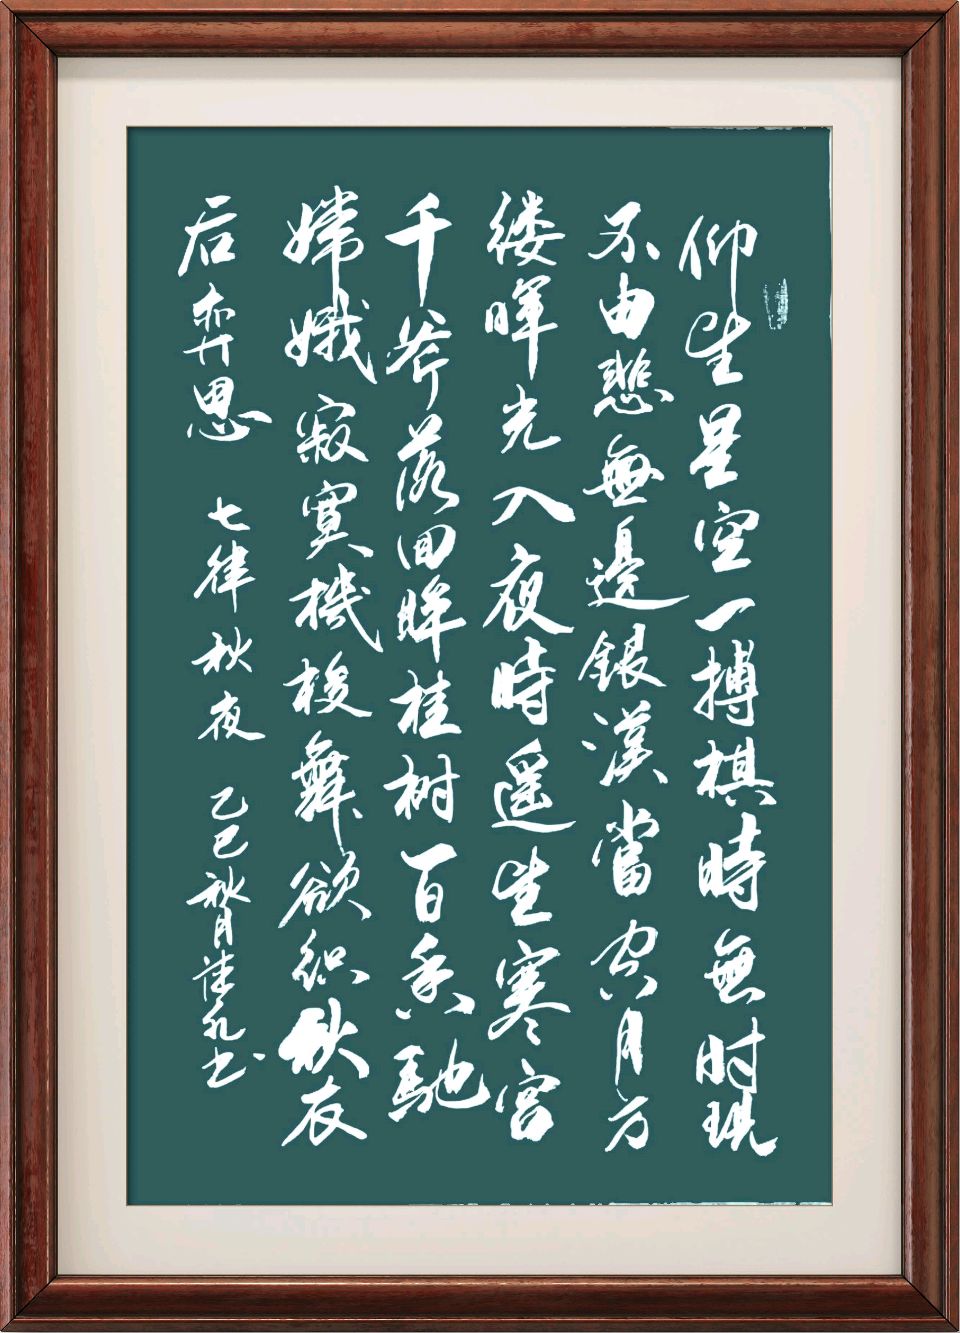 仰望星空一搏棋時無时現
不由悲無邊銀漢當空月万
缕暉光入夜時遥望寒宮
千斧落回眸桂树百香馳
嫦娥寂寞機梭舞欲织秋衣
后羿思 七律 秋夜 乙巳秋月 书